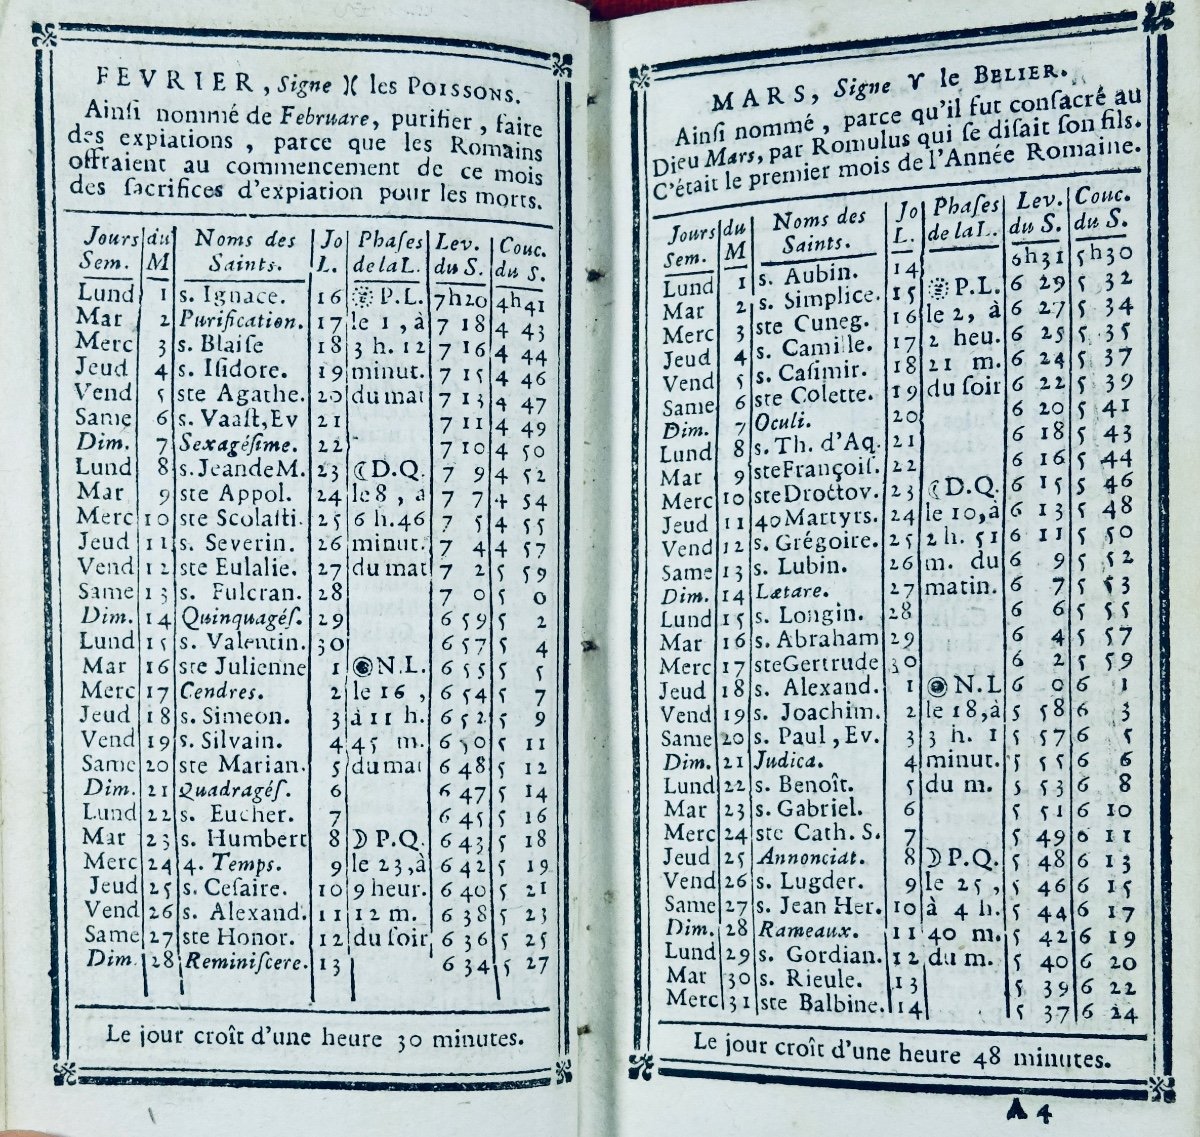 FEVRIER, Signe ♓ les POISSONS.
Ainſi nommé de Februare, purifier, faire
des expiations, parce que les Romains
offraient au commencement de ce mois
des ſacrifices d'expiation pour les morts.
Jours du Noms des Jo Phaſes Lev. Couc.
Sem. M Saints. L. de la L. du S. du S.
Lund 1 s. Ignace. 16 P.L. 7h20 4h41
Mar 2 Purification. 17 le 1, à 7 18 4 43
Merc 3 s. Blaiſe 18 3 h. 12 7 16 4 44
Jeud 4 s. Iſidore. 19 minut. 7 15 4 46
Vend 5 ste Agathe. 20 du mat 7 13 4 47
Same 6 s. Vaaſt, Ev 21 7 11 4 49
Dim. 7 Sexagéſime. 22 7 10 4 50
Lund 8 s. Jean de M. 23 ☾ D.Q. 7 9 4 52
Mar 9 ste Appol. 24 le 8, a 7 7 4 54
Merc 10 ste Scolaſti. 25 6 h. 46 7 5 4 55
Jeud 11 s. Severin. 26 minut. 7 4 4 57
Vend 12 ste Eulalie. 27 du mat 7 2 5 59
Same 13 s. Fulcran. 28 7 0 5 0
Dim. 14 Quinquagéſ. 29 6 59 5 2
Lund 15 s. Valentin. 30 6 57 5 4
Mar 16 ste Julienne 1 N.L. 6 55 5 5
Merc 17 Cendres. 2 le 16, 6 54 5 7
Jeud 18 s. Simeon. 3 à 11 h. 6 52 5 9
Vend 19 s. Silvain. 4 45 m. 6 50 5 11
Same 20 ste Marian. 5 du mat 6 48 5 12
Dim. 21 Quadragéſ. 6 6 47 5 14
Lund 22 s. Eucher. 7 6 45 5 16
Mar 23 s. Humbert 8 ☽ P.Q. 6 43 5 18
Merc 24 4. Temps. 9 le 23, à 6 42 5 19
Jeud 25 s. Ceſaire. 10 9 heur. 6 40 5 21
Vend 26 s. Alexand. 11 12 m. 6 38 5 23
Same 27 ste Honor. 12 du ſoir 6 36 5 25
Dim. 28 Reminiſcere. 13 6 34 5 27
Le jour croît d'une heure 30 minutes.
MARS, Signe ♈ le BELIER.
Ainſi nommé, parce qu'il fut conſacré au
Dieu Mars, par Romulus qui ſe diſait ſon fils.
C'était le premier mois de l'Année Romaine.
Jours du Noms des Jo Phaſes Lev. Couc.
Sem. M Saints. L. de la L. du S. du S.
Lund 1 s. Aubin. 14 6h31 5h30
Mar 2 s. Simplice. 15 P.L. 6 29 5 32
Merc 3 ste Cuneg. 16 le 2, à 6 27 5 34
Jeud 4 s. Camille. 17 2 heu. 6 25 5 35
Vend 5 s. Caſimir. 18 21 m. 6 24 5 37
Same 6 ste Colette. 19 du ſoir 6 22 5 39
Dim. 7 Oculi. 20 6 20 5 41
Lund 8 s. Th. d'Aq. 21 6 18 5 43
Mar 9 ste Françoiſ. 22 6 16 5 44
Merc 10 ste Droctov. 23 ☾ D.Q. 6 15 5 46
Jeud 11 40 Martyrs. 24 le 10, à 6 13 5 48
Vend 12 s. Grégoire. 25 2 h. 51 6 11 5 50
Same 13 s. Lubin. 26 m. du 6 9 5 52
Dim. 14 Lætare. 27 matin. 6 7 5 53
Lund 15 s. Longin. 28 6 6 5 55
Mar 16 s. Abraham 29 6 4 5 57
Merc 17 ste Gertrude 30 6 2 5 59
Jeud 18 s. Alexand. 1 N.L 6 0 6 1
Vend 19 s. Joachim. 2 le 18, à 5 58 6 3
Same 20 s. Paul, Ev. 3 3 h. 1 5 57 6 5
Dim. 21 Judica. 4 minut. 5 55 6 6
Lund 22 s. Benoît. 5 du m. 5 53 6 8
Mar 23 s. Gabriel. 6 5 51 6 10
Merc 24 ste Cath. S. 7 5 49 6 11
Jeud 25 Annonciat. 8 ☽ P.Q. 5 48 6 13
Vend 26 s. Lugder. 9 le 25, 5 46 6 15
Same 27 s. Jean Her. 10 à 4 h. 5 44 6 17
Dim. 28 Rameaux. 11 40 m. 5 42 6 19
Lund 29 s. Gordian. 12 du m. 5 40 6 20
Mar 30 s. Rieule. 13 5 39 6 22
Merc 31 ste Balbine. 14 5 37 6 24
Le jour croît d'une heure 48 minutes.
A 4